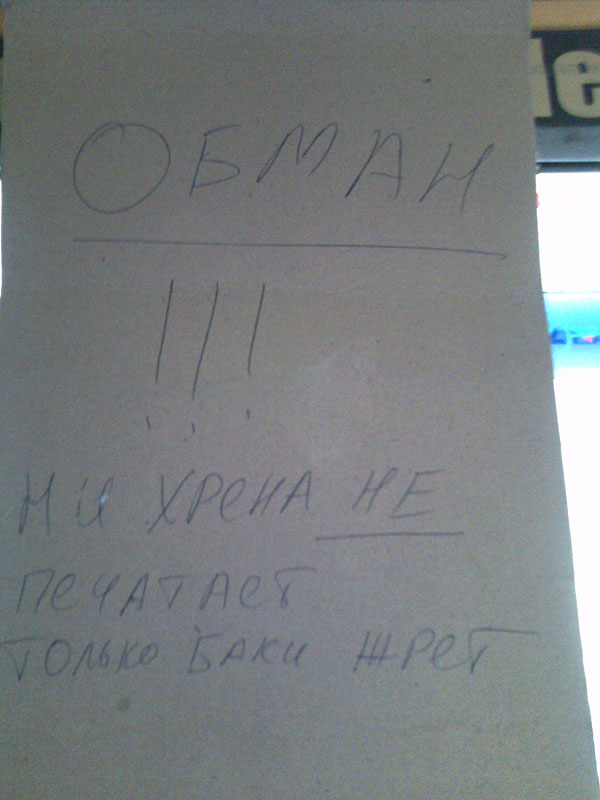 ОБМАН
!!!
НИ ХРЕНА НЕ
ПЕЧАТАЕТ
ТОЛЬКО БАКИ ЖРЕТ
le